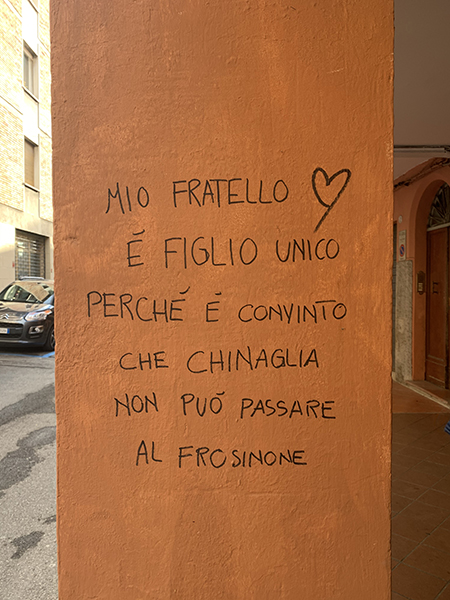 MIO FRATELLO
É FIGLIO UNICO
PERCHÉ É CONVINTO
CHE CHINAGLIA
NON PUÓ PASSARE
AL FROSINONE